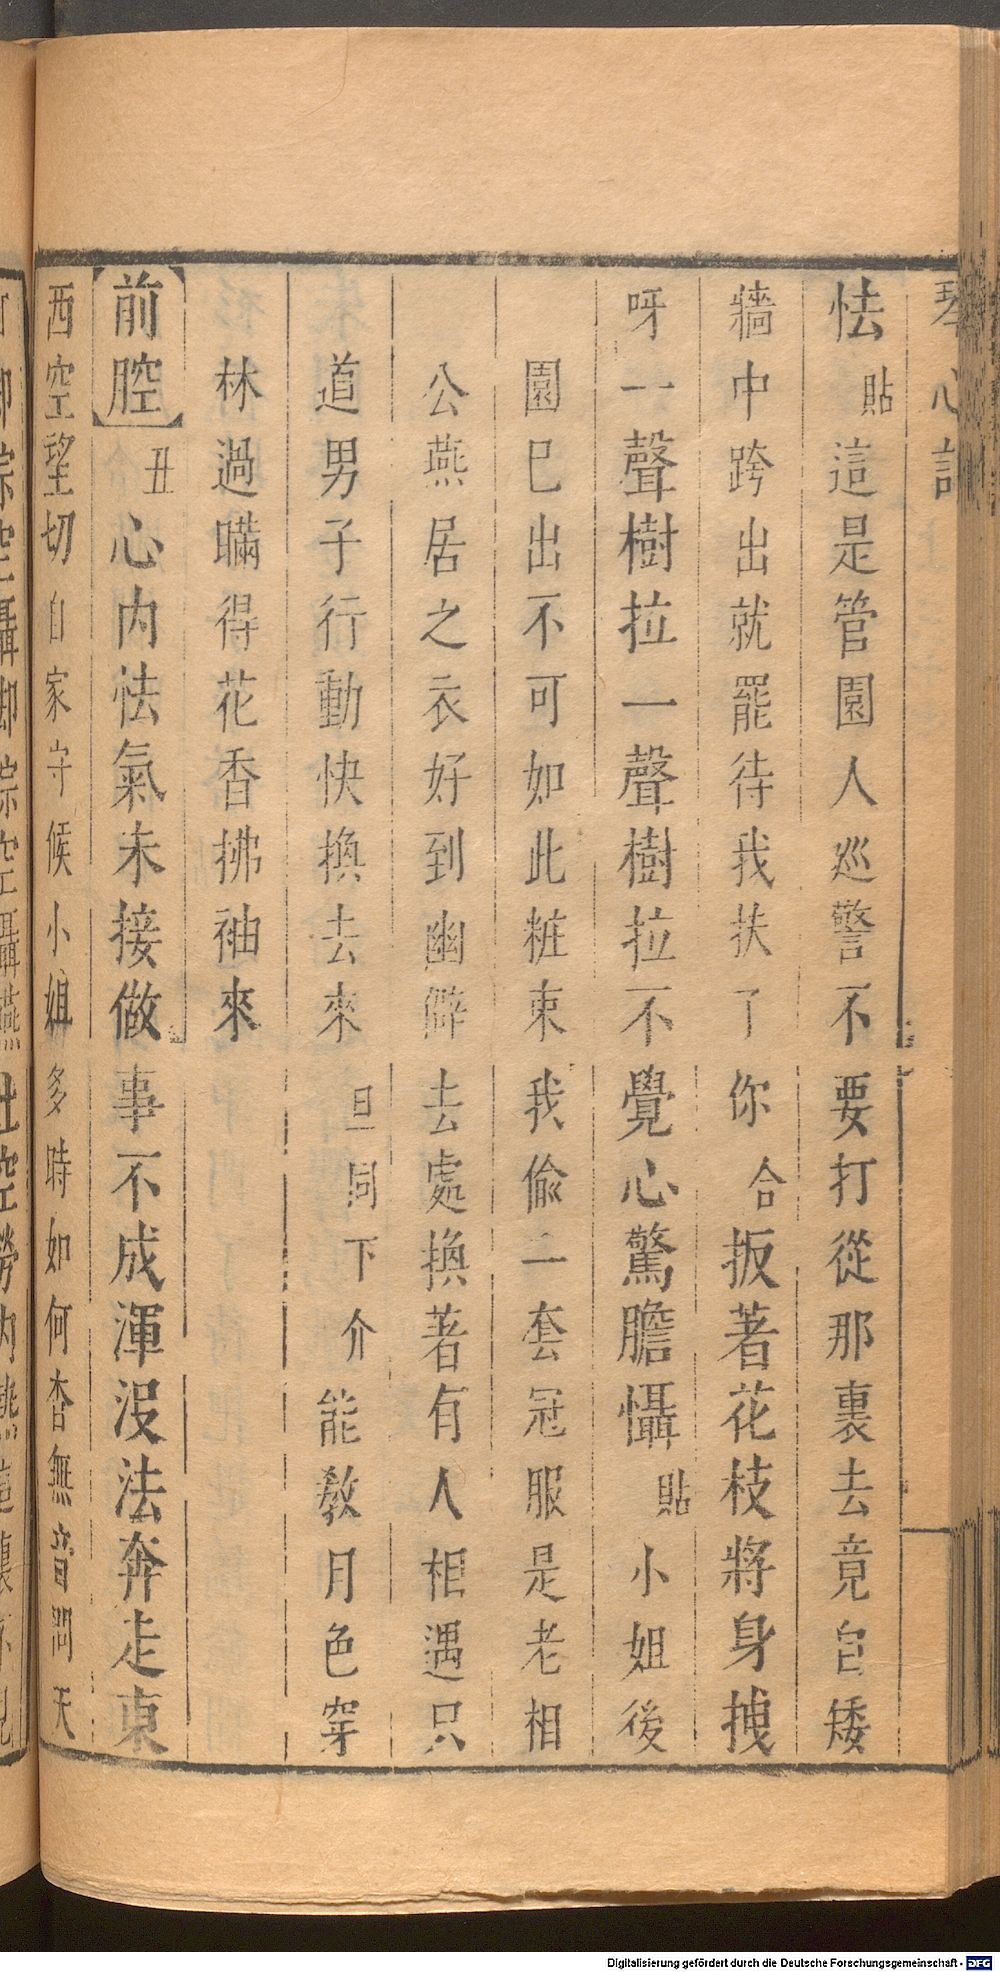 琴心記
怯貼這是管園人巡警不要打從那裏去竟自矮
牆中跨出就罷待我扶了你合扳著花枝將身拽
呀一聲樹拉一聲樹拉不覺心驚膽懾貼小姐後
園已出不可如此粧束我偷二套冠服是老相
公燕居之衣好到幽僻去處換著有人相遇只
道男子行動快換去來旦同下介能教月色穿
林過瞞得花香拂袖來
【前腔】丑心內怯氣未接做事不成渾沒法奔走東
西空望切自家守候小姐多時如何杳無音問天
Digitalisierung gefördert durch die Deutsche Forschungsgemeinschaft - DFG